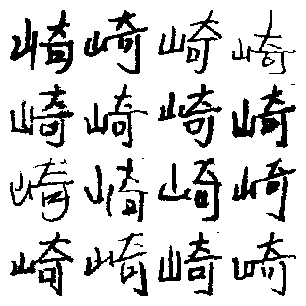 崎崎崎崎
崎崎崎崎
崎崎崎崎
崎崎崎崎